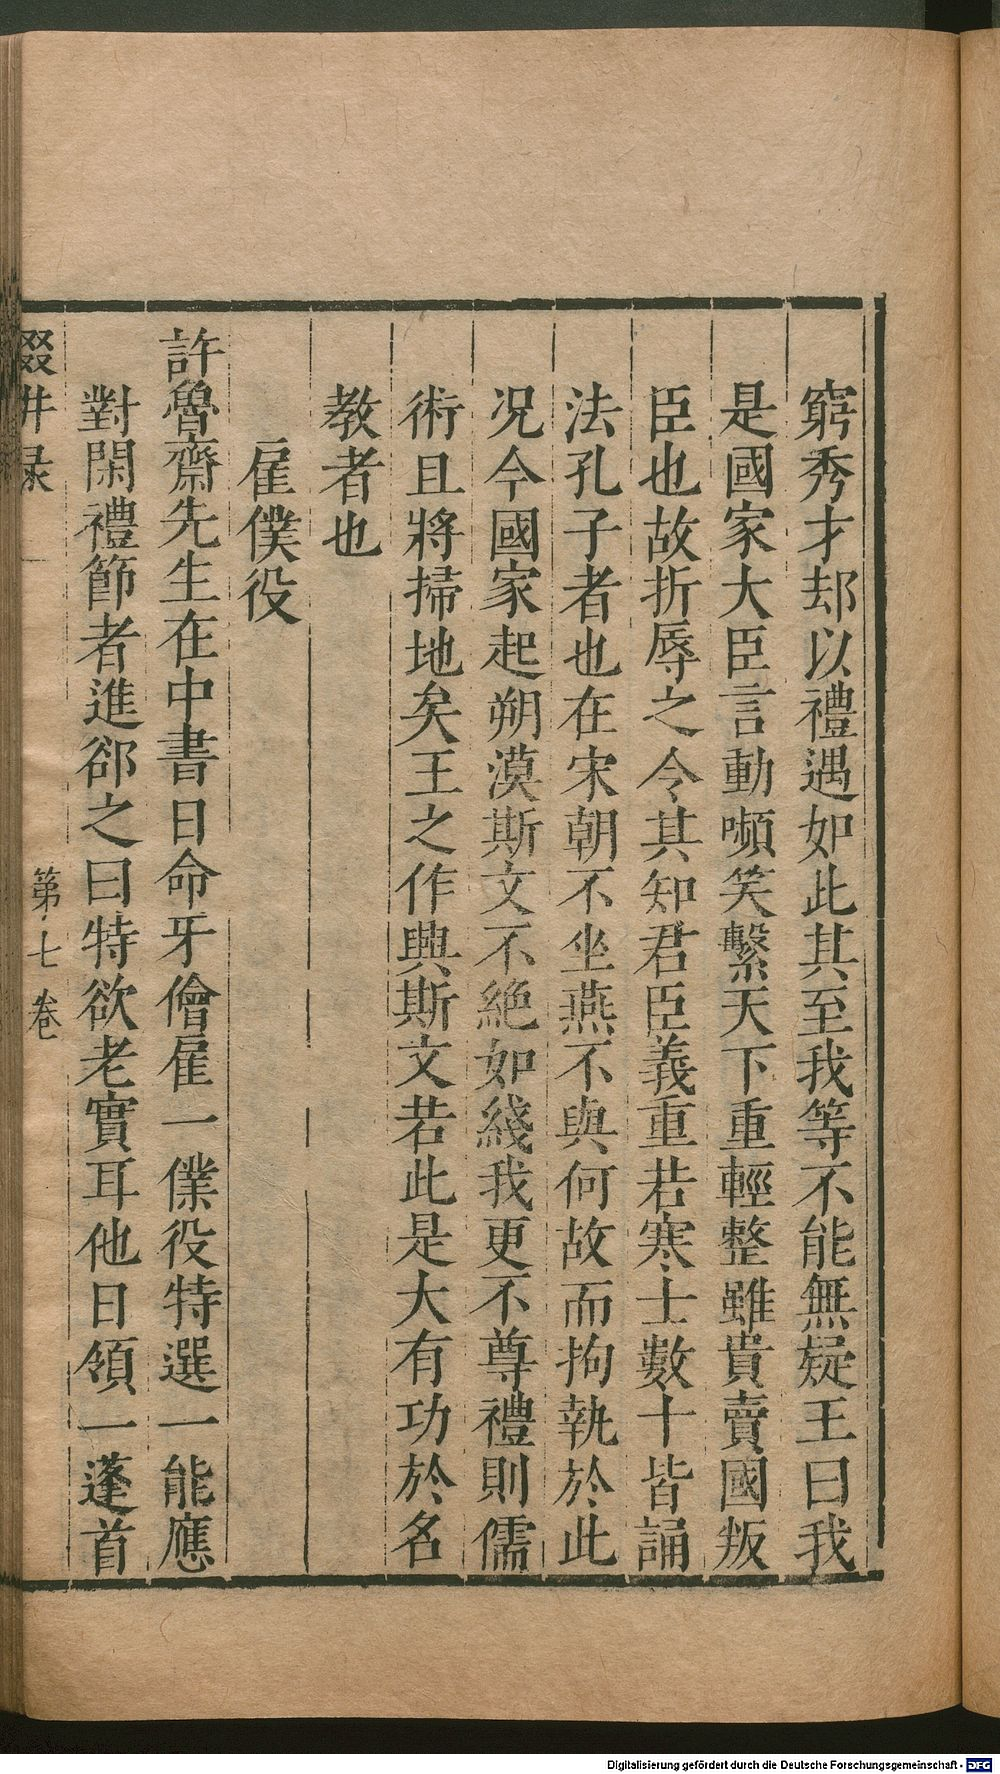 窮秀才却以禮遇如此其至我等不能無疑王曰我
是國家大臣言動嚬笑繫天下重輕整雖貴賣國叛
臣也故折辱之令其知君臣義重若寒士數十皆誦
法孔子者也在宋朝不坐燕不與何故而拘執於此
况今國家起朔漠斯文不絶如綫我更不尊禮則儒
術且將掃地矣王之作興斯文若此是大有功於名
教者也
雇僕役
許魯齋先生在中書日命牙儈雇一僕役特選一能應
對閑禮節者進郤之曰特欲老實耳他日領一蓬首
第七卷
Digitalisierung gefördert durch die Deutsche Forschungsgemeinschaft - DFG